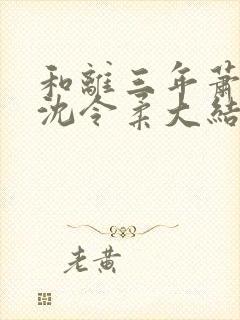 和離三年蕭
沈令柔大結
老黃